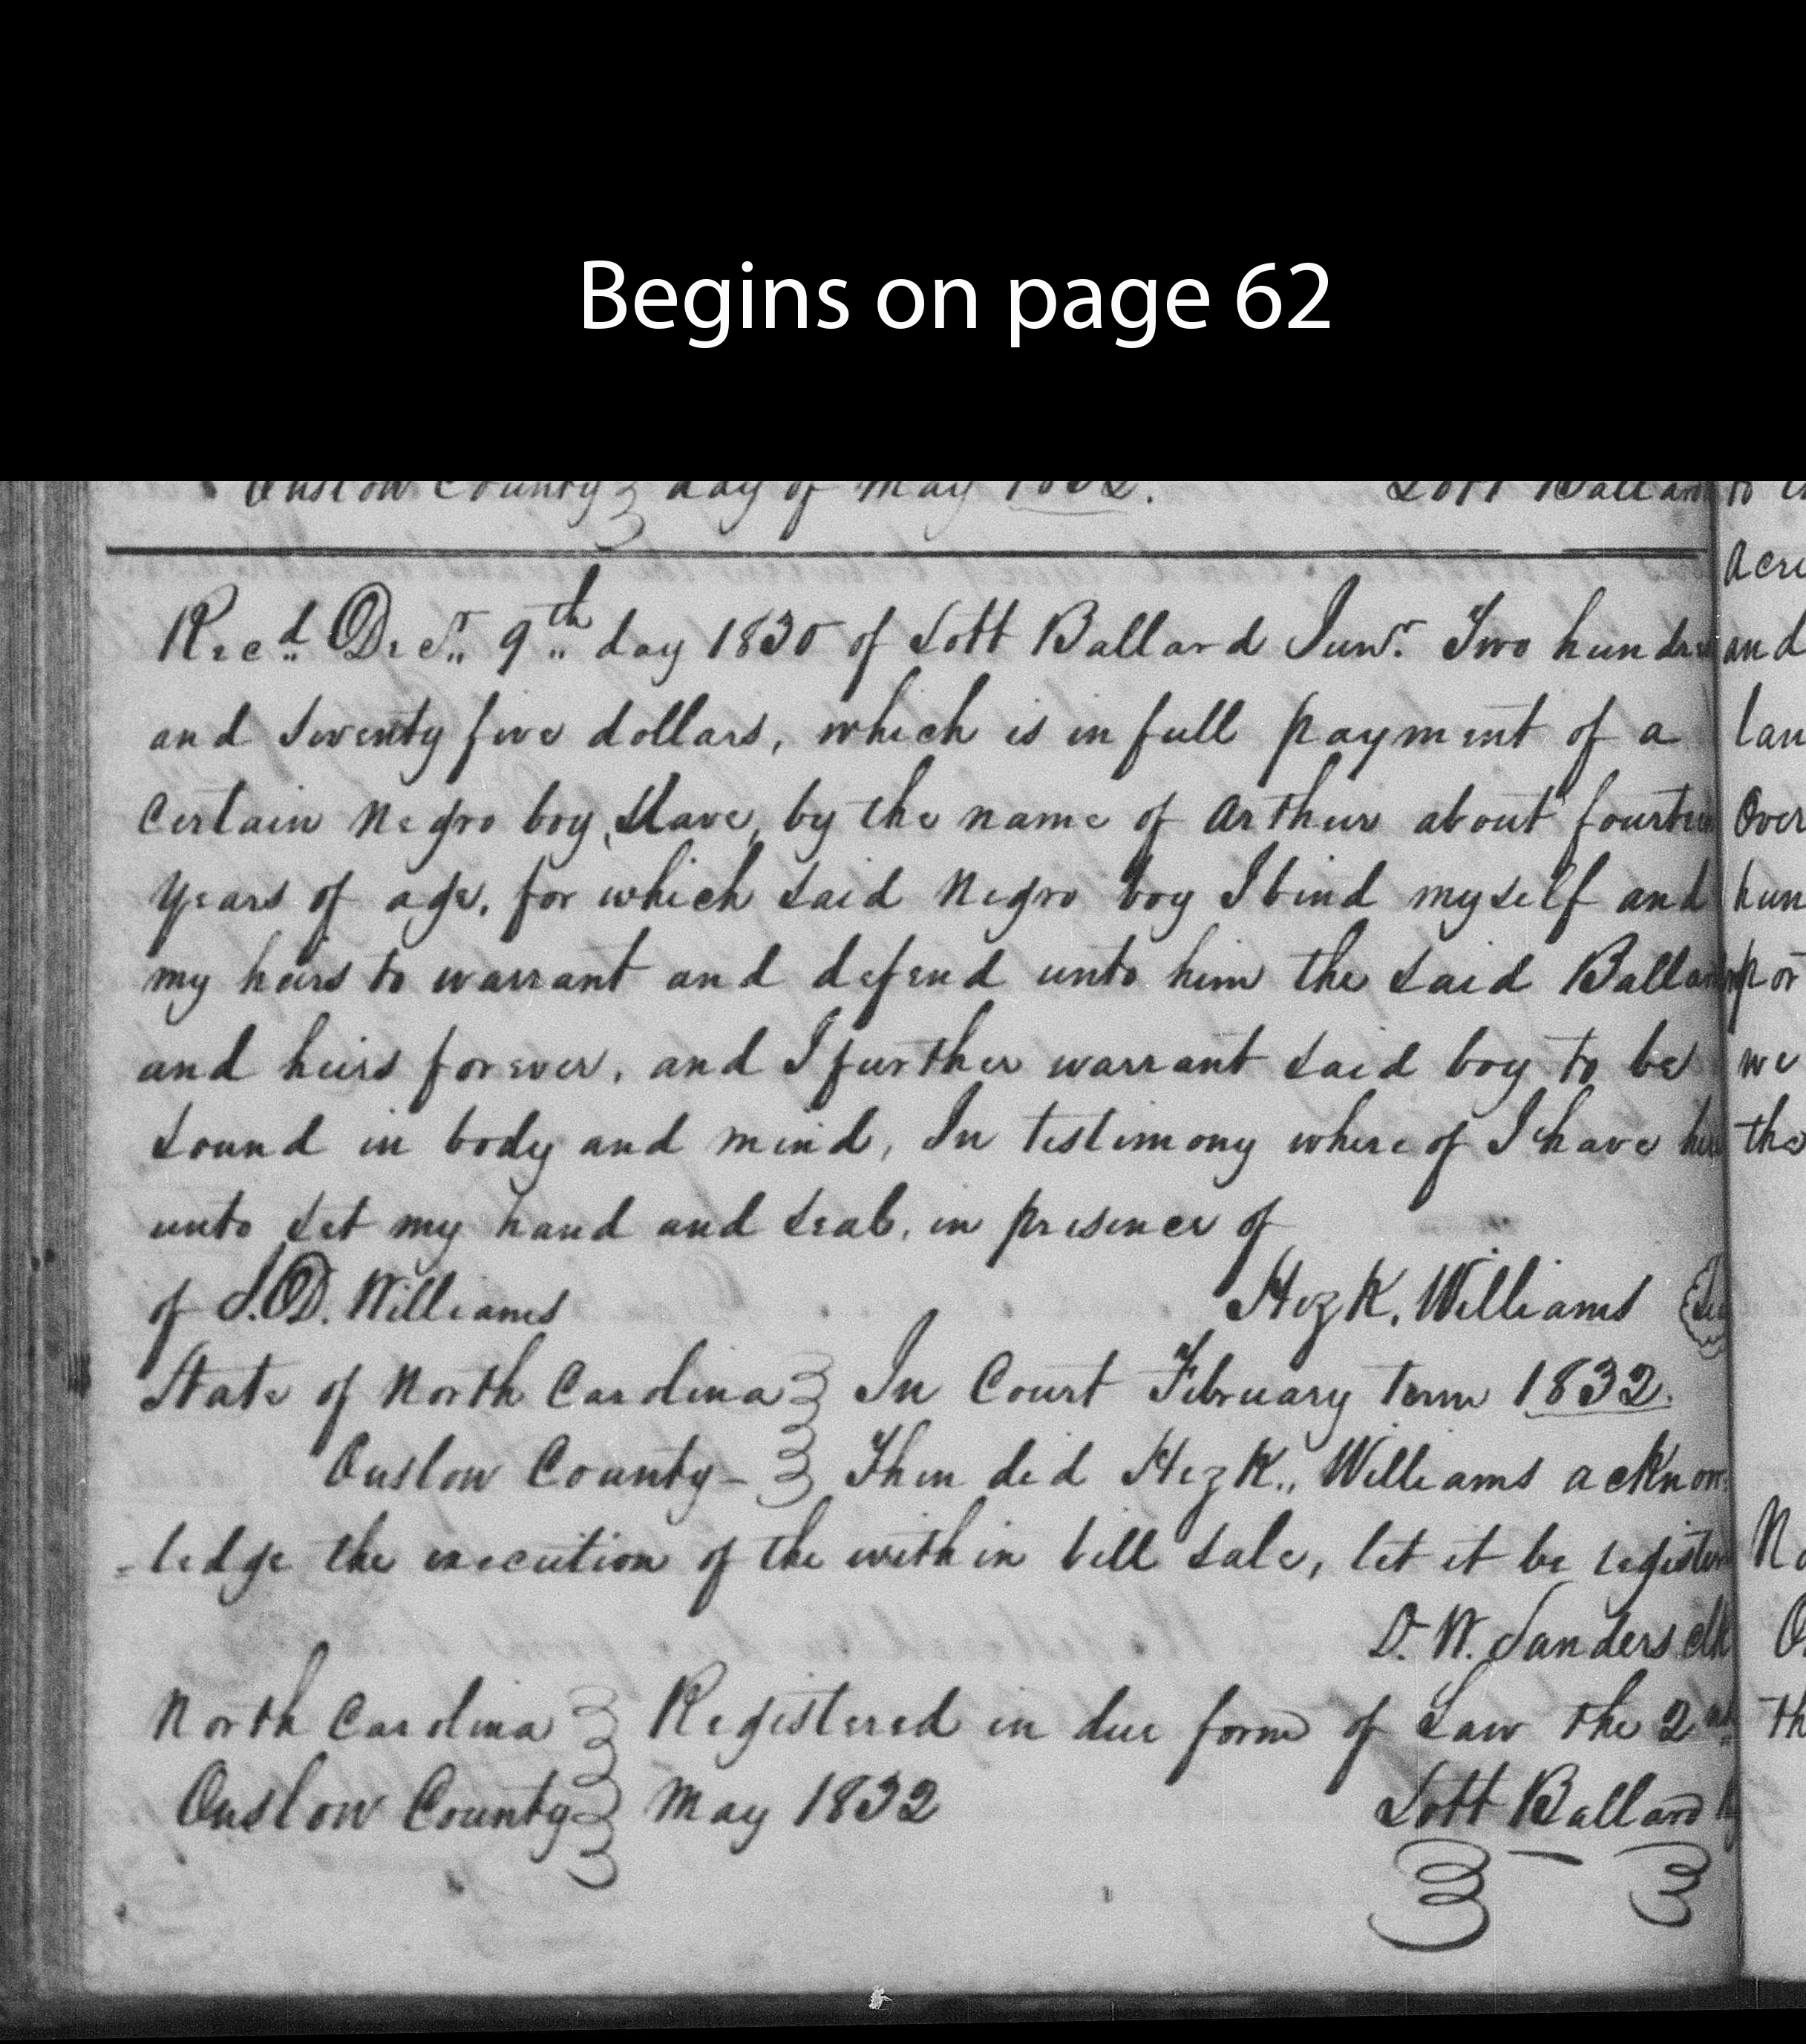 Begins on page 62
Onslow County day of May 1832. Lott Ballard
Recd. Decr. 9th day 1830 of Lott Ballard Junr. Two hundre
and Seventy five dollars, which is in full payment of a
Certain Negro boy, Slave, by the name of Arthur about fourteen
years of age, for which said Negro boy I bind myself and
my heirs to warrant and defend unto him the said Ballard
and heirs forever, and I further warrant said boy to be
sound in body and mind, In testimony where of I have her
unto set my hand and seal, in presence of
of S.D. Williams Hezk. Williams
State of North Carolina In Court February term 1832.
Onslow County - Then did Hezk., Williams acknow
=ledge the execution of the within bill sale, let it be register
D. W. Sanders clk
North Carolina Registered in due form of Law the 2nd
Onslow County May 1832 Lott Ballard
acre
and
lan
Over
hun
por
we
the